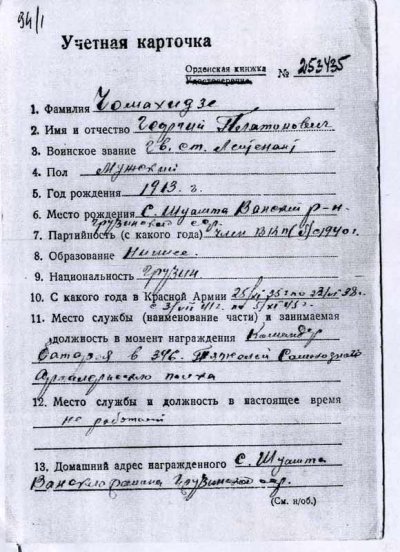 94/1
Учетная карточка
Орденская книжка
Удостоверение № 253435
1. Фамилия Чомахидзе
2. Имя и отчество Георгий Платонович
3. Воинское звание Гв. ст. Лейтенант
4. Пол Мужский
5. Год рождения 1913 г.
6. Место рождения С. Шуамта Ванский р-н.
Грузинской сср.
7. Партийность (с какого года) член ВКП(б) с 1940 г.
8. Образование Низшее.
9. Национальность Грузин
10. С какого года в Красной Армии
11. Место службы (наименование части) и занимаемая
должность в момент награждения Командир
Батареи в 396. Тяжолой Самоходного
Артиллерийского полка
12. Место службы и должность в настоящее время
не работает
13. Домашний адрес награжденного С. Шуамта
Ванского района Грузинской сср.
(См. н/об.)